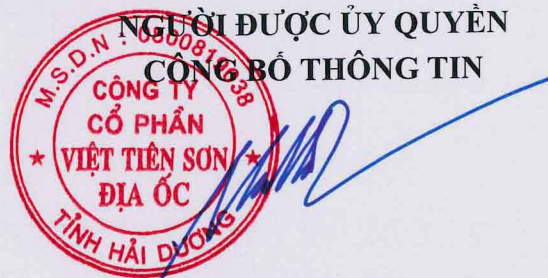 NGƯỜI ĐƯỢC ỦY QUYỀN
CÔNG BỐ THÔNG TIN
M.S.D.N : 0800819038
CÔNG TY
CỔ PHẦN
VIỆT TIÊN SƠN
ĐỊA ỐC
TỈNH HẢI DƯƠNG